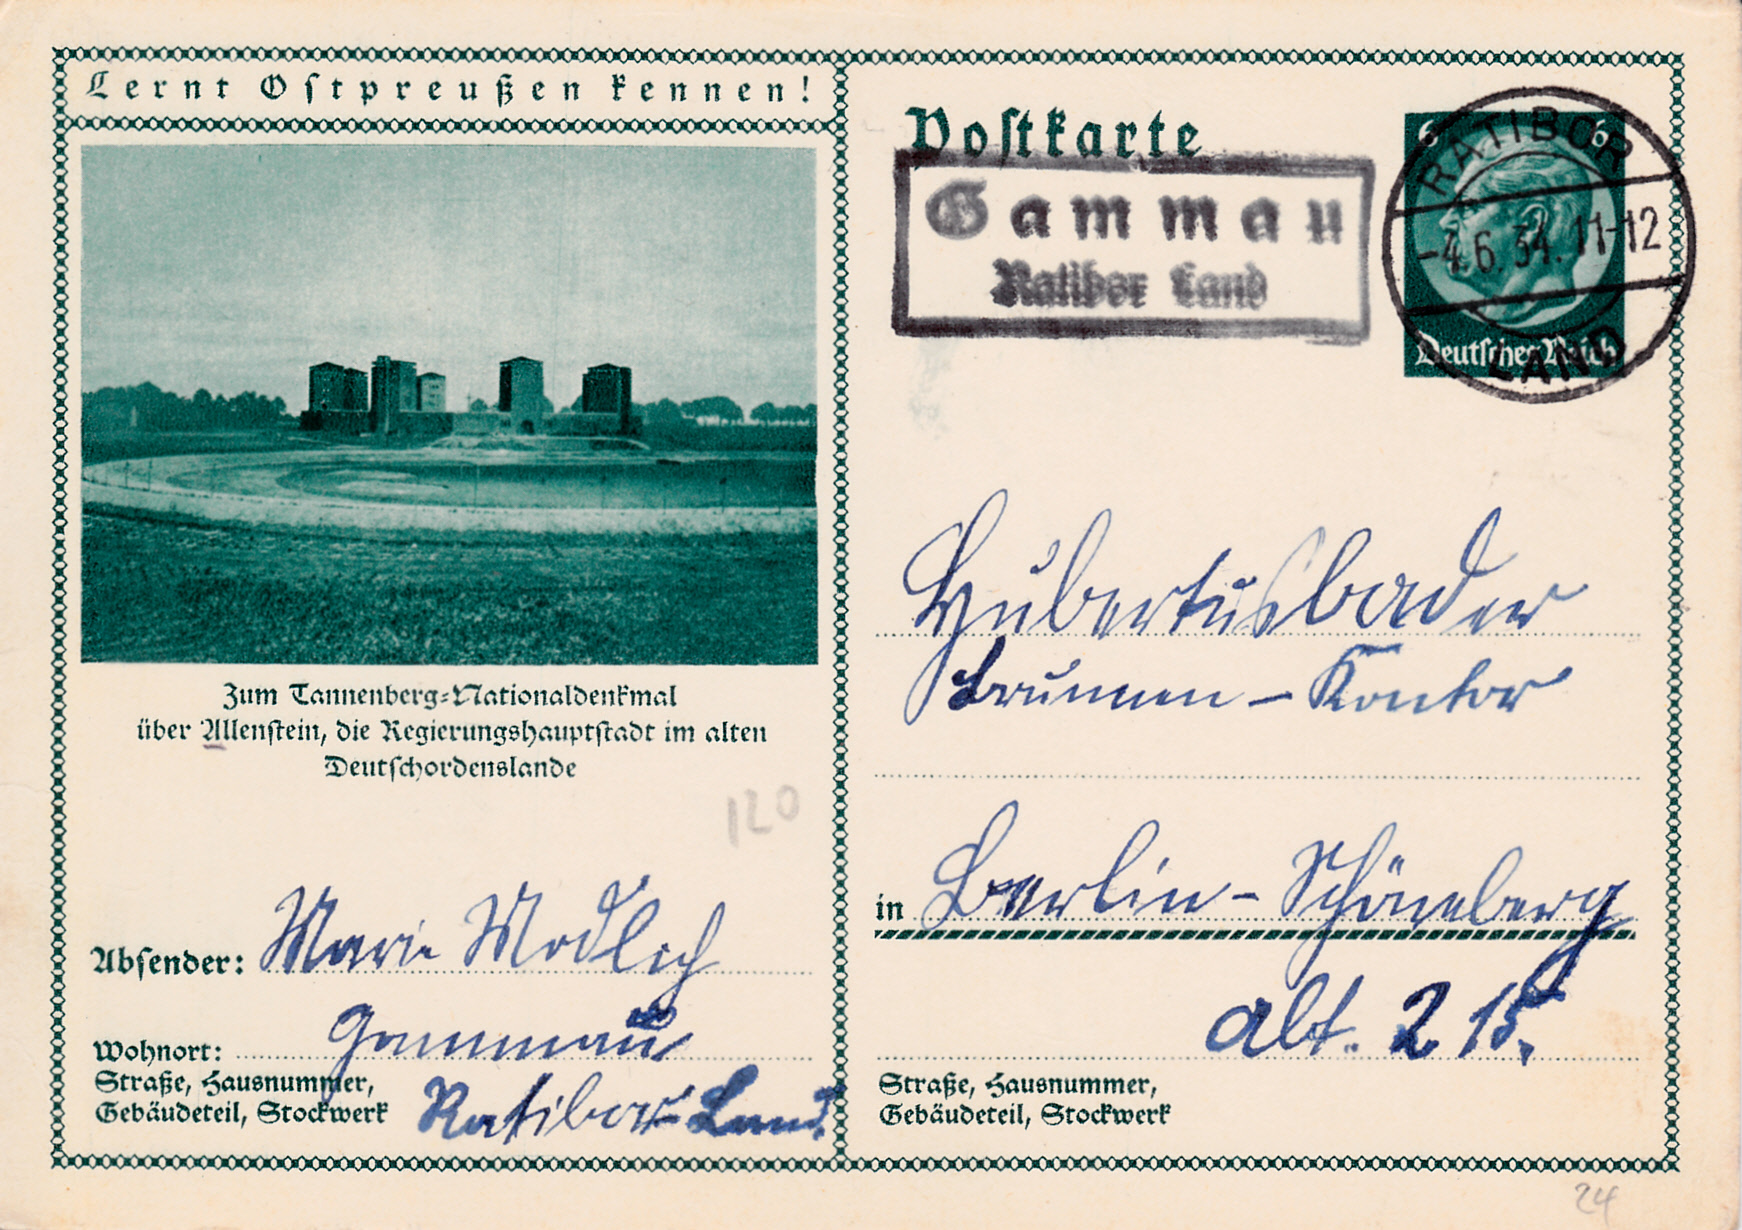 Lernt Ostpreußen kennen!
Zum Tannenberg-Nationaldenkmal
über Allenstein, die Regierungshauptstadt im alten
Deutschordenslande
120
Absender: Marie Modlich
Wohnort: Gammau
Straße, Hausnummer,
Gebäudeteil, Stockwerk
Ratibor-Land.
Postkarte
Gammau
Ratibor Land
6 6
Deutsches Reich
RATIBOR
-4.6.34.11-12
LAND
Hubertusbader
Brunnen-Kontor
in Berlin-Schöneberg
Abt. 2 15.
Straße, Hausnummer,
Gebäudeteil, Stockwerk
24